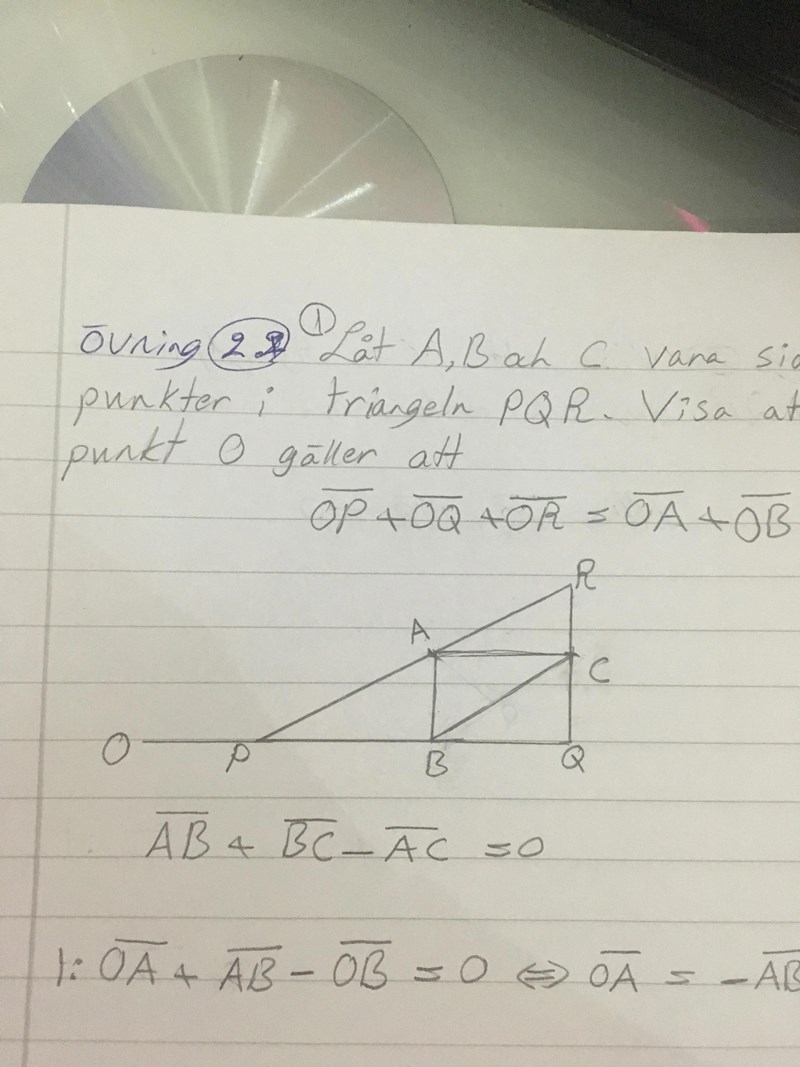 Övning 22 ① Låt A, B och C vara
punkter i triangeln PQR. Visa
punkt O gäller att
O͞P + O͞Q + O͞R = O͞A + O͞B
R
A
C
O
P
B
Q
A͞B + B͞C - A͞C = 0
1: O͞A + A͞B - O͞B = 0 ⇔ O͞A = - A͞B